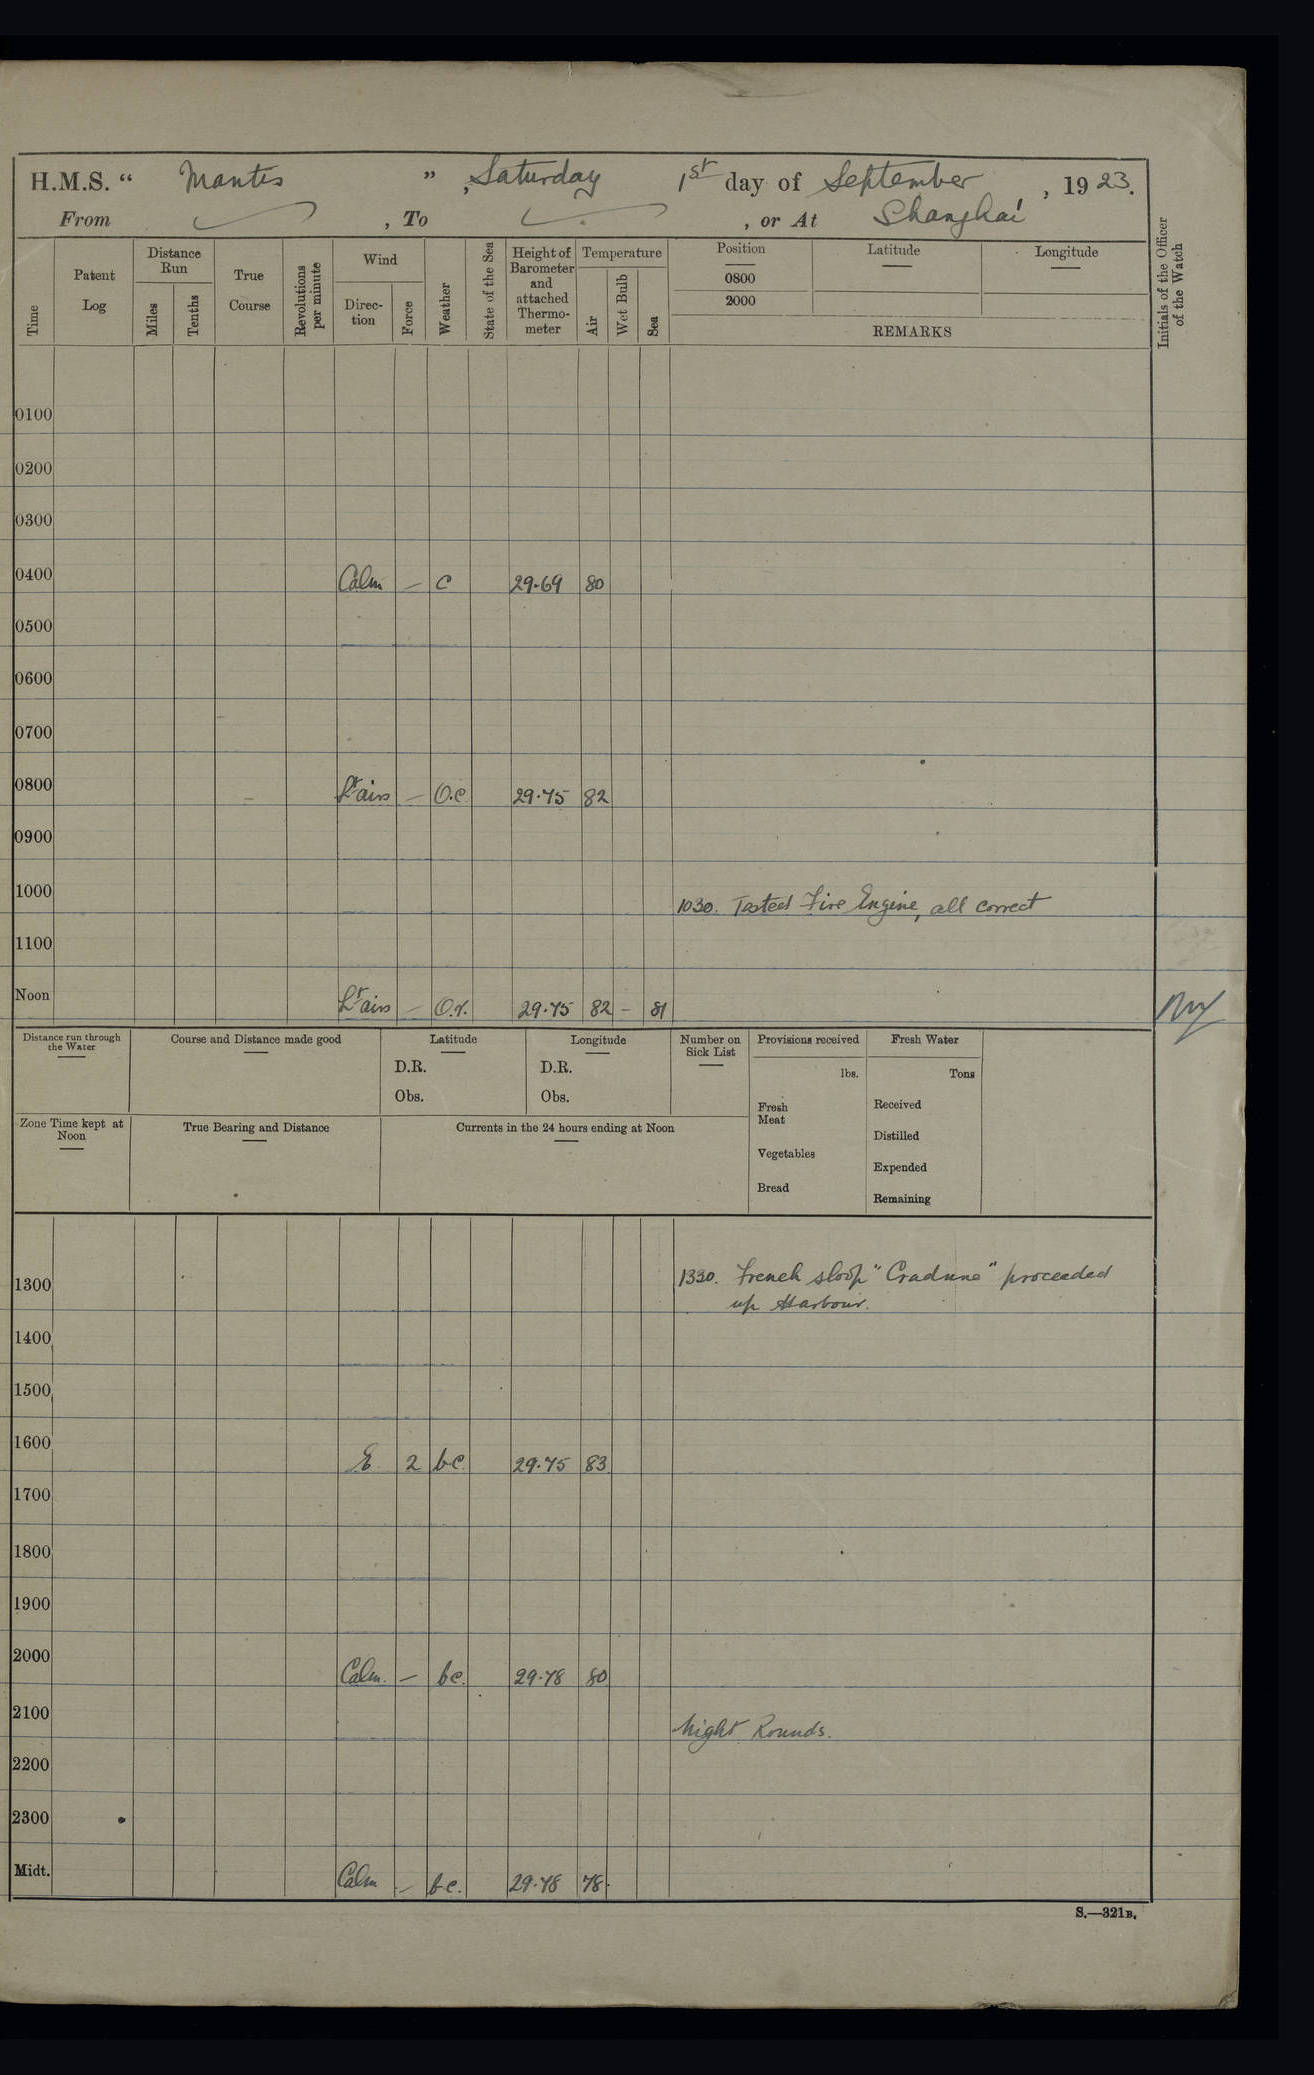 H.M.S. “ Mantis ”, Saturday 1st day of September, 1923.
From , To , or At Shanghai
Time
Patent Log
Distance Run
Miles
Tenths
True Course
Revolutions per minute
Wind
Direc-tion
Force
Weather
State of the Sea
Height of Barometer and attached Thermo-meter
Temperature
Air
Wet Bulb
Sea
Position
0800
2000
Latitude
Longitude
REMARKS
Initials of the Officer of the Watch
0100
0200
0300
0400 Calm — c 29.69 80
0500
0600
0700
0800 Lt airs — o.c 29.75 82
0900
1000 1030. Tested Fire Engine, all correct
1100
Noon Lt airs — o.r. 29.75 82 – 81
Distance run through the Water
Course and Distance made good
Latitude
D.R.
Obs.
Longitude
D.R.
Obs.
Number on Sick List
Provisions received
lbs.
Fresh Meat
Vegetables
Bread
Fresh Water
Tons
Received
Distilled
Expended
Remaining
Zone Time kept at Noon
True Bearing and Distance
Currents in the 24 hours ending at Noon
1300 1330. French sloop " " proceeded
up Harbour.
1400
1500
1600 E. 2 bc 29.75 83
1700
1800
1900
2000 Calm. — bc. 29.78 80
2100 Night Rounds.
2200
2300
Midt. Calm — bc. 29.78 78
S.—321B.